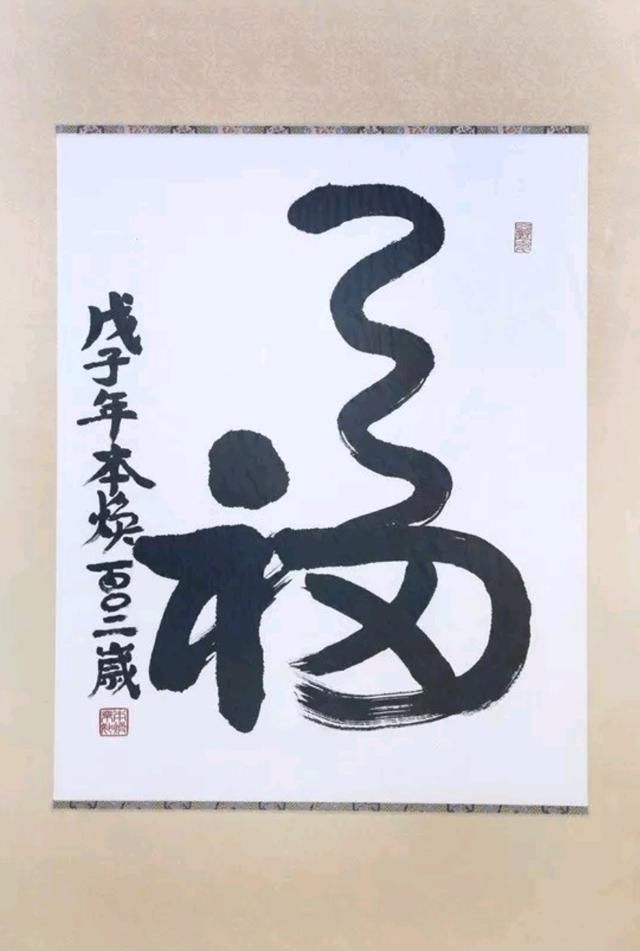 福
戊子年本焕一百〇二歲